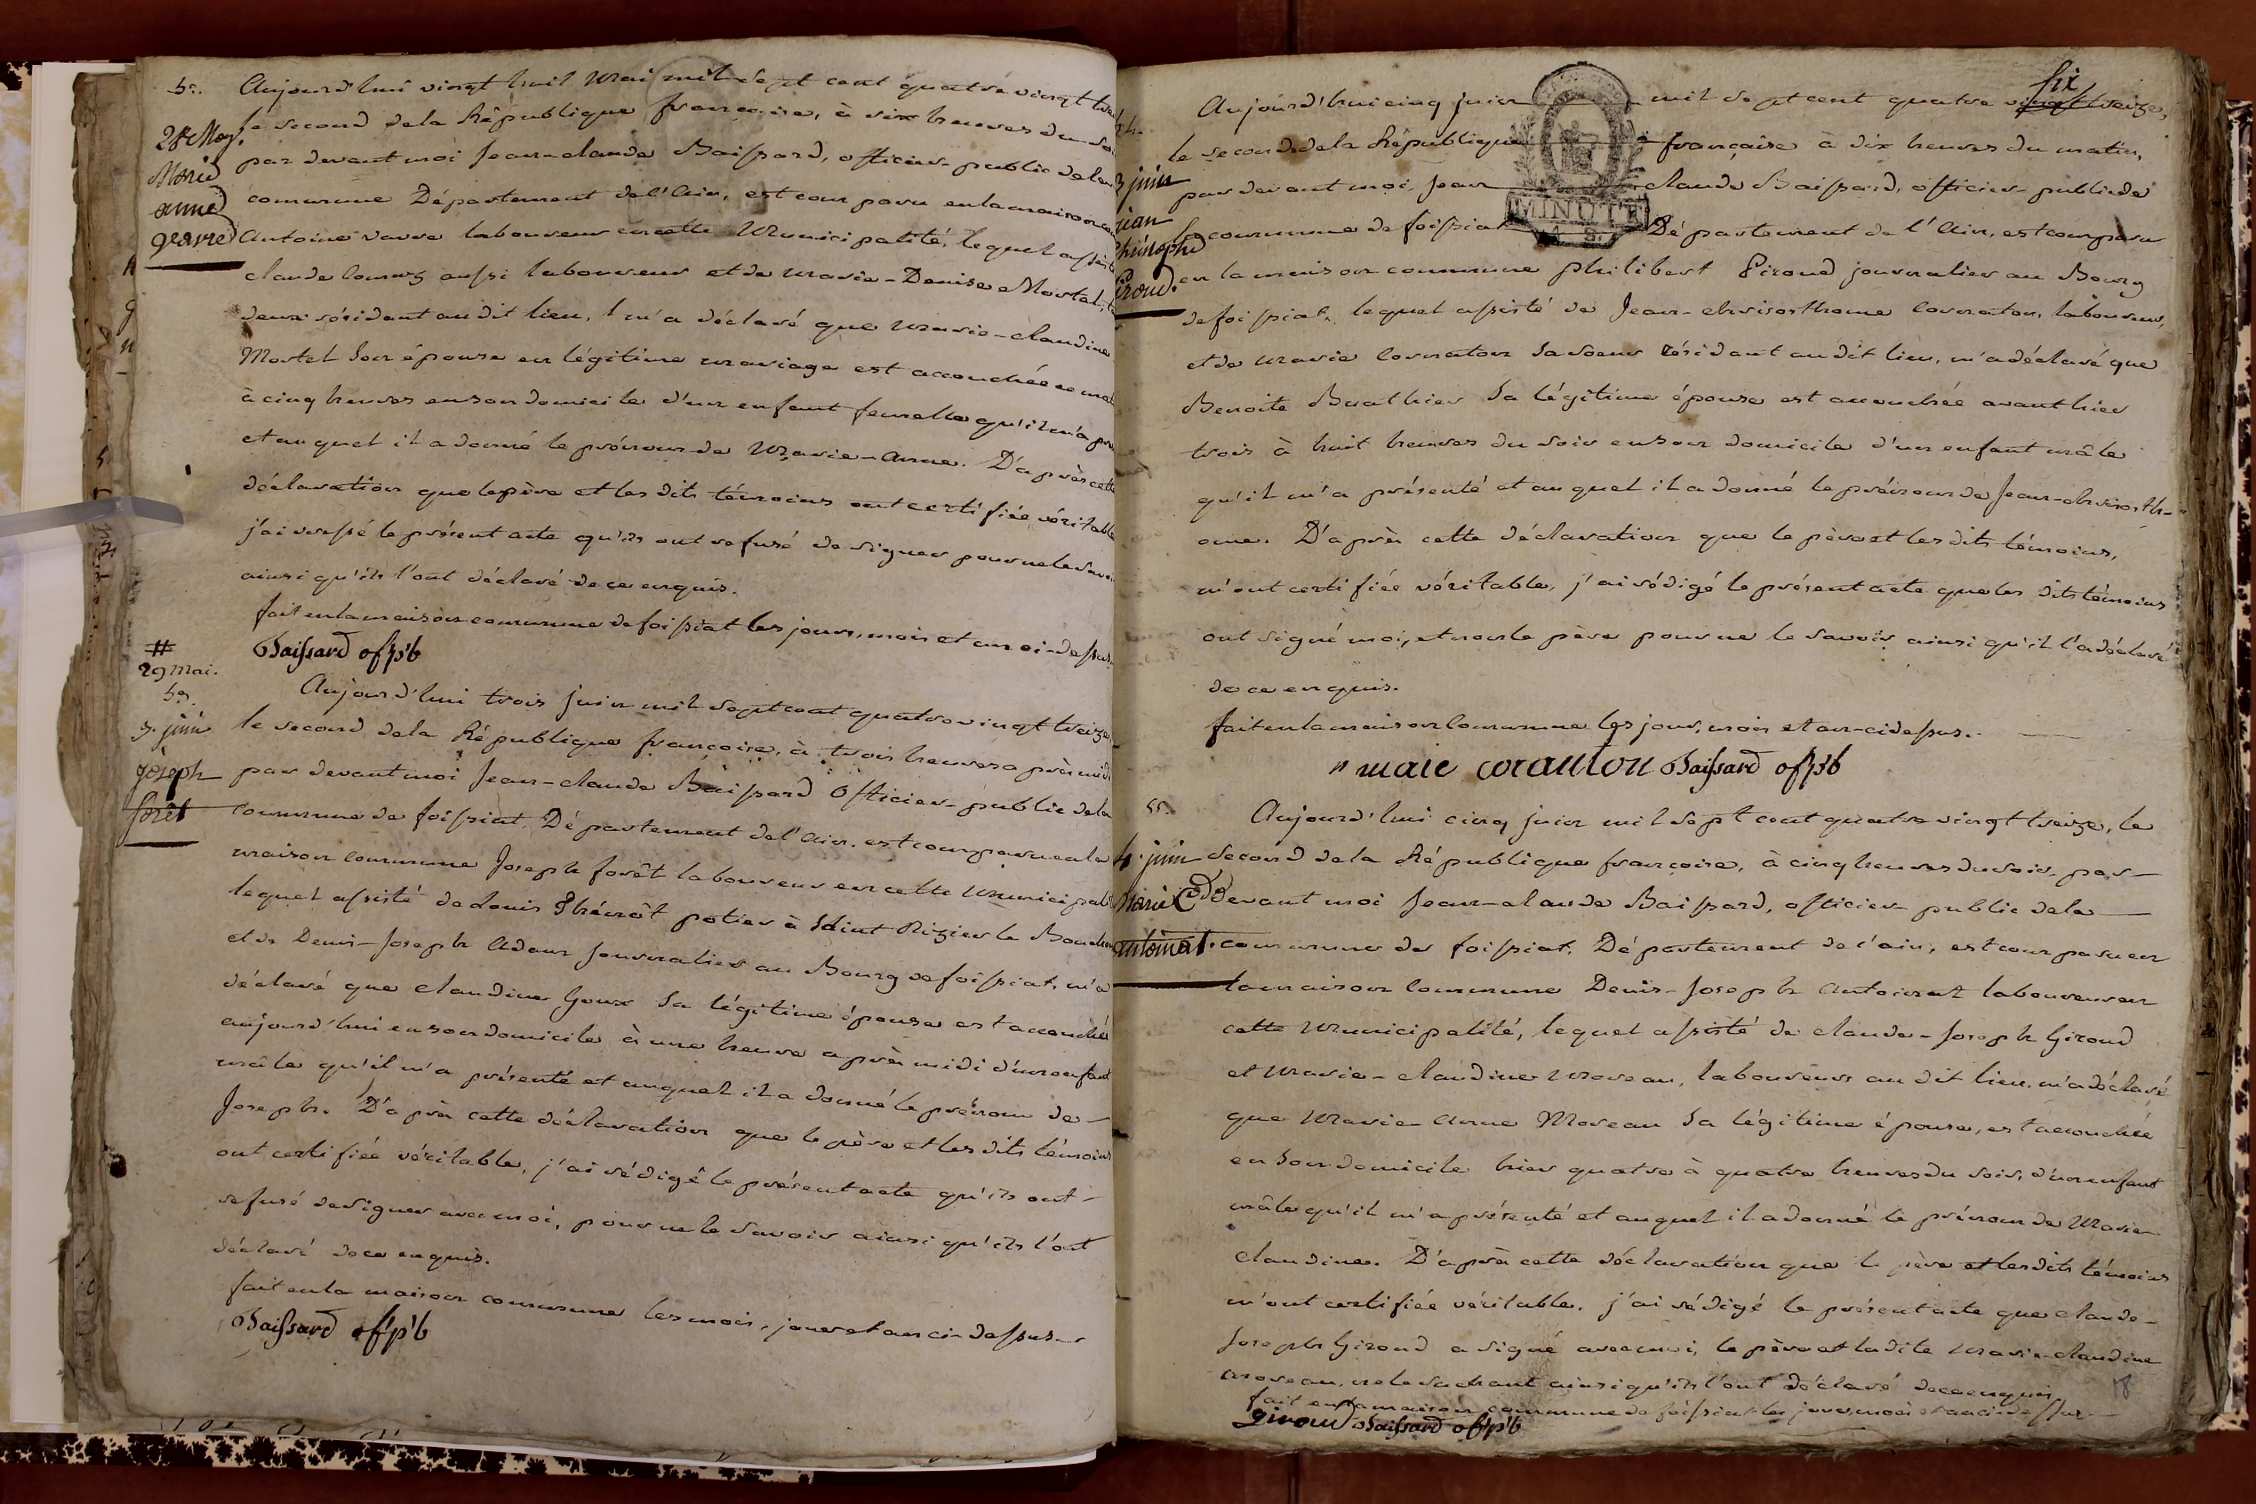 28 May.
Marie
anne
Aujourd'hui vingt huit Mai mil sept cent quatre vingt
le second de la République françoise, à six heures du
par devant moi Jean-claude Baissard, officier public de la
commune Département de l'Ain, est comparu en la maison
Antoine laboureur en cette Municipalité, lequel
claude aussi laboureur et de Marie-Denise Mortel,
deux résidant au dit lieu, m'a déclaré que Marie-claudine
Mortel son épouse en légitime mariage est accouchée
à cinq heures en son domicile d'un enfant femelle qu'il m'a
et auquel il a donné le prénom de Marie-Anne. D'après cette
déclaration que le père et les dits témoins ont certifiée véritable
j'ai le présent acte qu'ils ont refusé de signer pour ne le
ainsi qu'ils l'ont déclaré de ce enquis.
fait en la maison commune de foissiat les jour, mois et an ci-dessus.
Baissard of. p'b
#
29 Mai.
3. juin
joseph
forêt
Aujourd'hui trois Juin mil sept cent quatre vingt treize
le second de la République françoise, à trois heures après midi
par devant moi Jean-claude Baissard Officier public de la
commune de foissiat, Département de l'Ain, est comparu en la
maison commune Joseph forêt laboureur en cette
lequel assisté de Louis potier à Saint
et de Denis-Joseph Adam Journalier au Bourg de foissiat, m'a
déclaré que claudine Goux sa légitime épouse est accouchée
aujourd'hui en son domicile à une heure après midi d'un enfant
mâle qu'il m'a présenté et auquel il a donné le prénom de
Joseph. D'après cette déclaration que le père et les dits témoins
ont certifiée véritable, j'ai rédigé le présent acte qu'ils ont
refusé de signer avec moi, pour ne le savoir ainsi qu'ils l'ont
déclaré de ce enquis.
fait en la maison commune les mois, jour et an ci-dessus
Baissard of p'b
six
3 juin
Aujourd'hui cinq juin mil sept cent quatre vingt treize,
le second de la République françaíse à dix heures du matin,
par devant moi, Jean claude Baissard, officier public de
la commune de foissiat MINUTE Département de l'Ain, est comparu
en la maison commune philibert Piroud journalier au Bourg
de foissiat, lequel assisté de Jean- laboureur,
et de Marie sa soeur résidant au dit lieu, m'a déclaré que
Benoite Buathier sa légitime épouse est accouchée avant hier
trois à huit heures du soir en son domicile d'un enfant mâle
qu'il m'a présenté et auquel il a donné le prénom de
D'après cette déclaration que le père et les dits témoins,
m'ont certifiée véritable, j'ai rédigé le présent acte que les dits témoins
ont signé moi, et non le père pour ne le savoir ainsi qu'il l'a déclaré
de ce enquis.
fait en la maison commune les jour, mois et an ci dessus.
Baissard of p'b
55.
4. juin
Aujourd'hui cinq juin mil sept cent quatre vingt treize, le
second de la République françoise, à cinq heures du soir, par
devant moi Jean-claude Baissard, officier public de la
commune de foissiat, Département de l'ain, est comparu en
la maison commune Denis-Joseph Antoinat laboureur en
cette Municipalité, lequel assisté de claude-Joseph Giroud
et Marie-claudine Moreau, laboureurs au dit lieu, m'a déclaré
que Marie Anne Moreau sa légitime épouse, est accouchée
en son domicile hier quatre à quatre heures du soir, d'un enfant
mâle qu'il m'a présenté et auquel il a donné le prénom de Marie
claudine. D'après cette déclaration que le père et les dits témoins
m'ont certifiée véritable, j'ai rédigé le présent acte que claude-
Joseph Giroud a signé avec moi, le père et la dite Marie claudine
Moreau, ne le sachant ainsi qu'ils l'ont déclaré de ce enquis.
fait en la maison commune de foissiat les jour, mois et an ci dessus
giroud Baissard of p'b
18